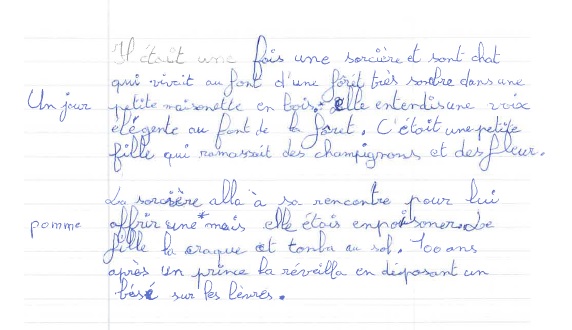 Il était une fois une sorcière et sont chat
qui vivait au font d'une fôrit très sombre dans une
Un jour petite maisonette en bois. elle entendis une voix
élégente au font de la foret. C'était une petite
fille qui ramassait des champignons et des fleur.
La sorcière alla à sa rencontre pour lui
pomme offrir une * mais elle étais enpoisoner. Le
fille la craque et tonba au sol. 100 ans
après un prince la réveilla en déposant un
bésé sur les lèvres.